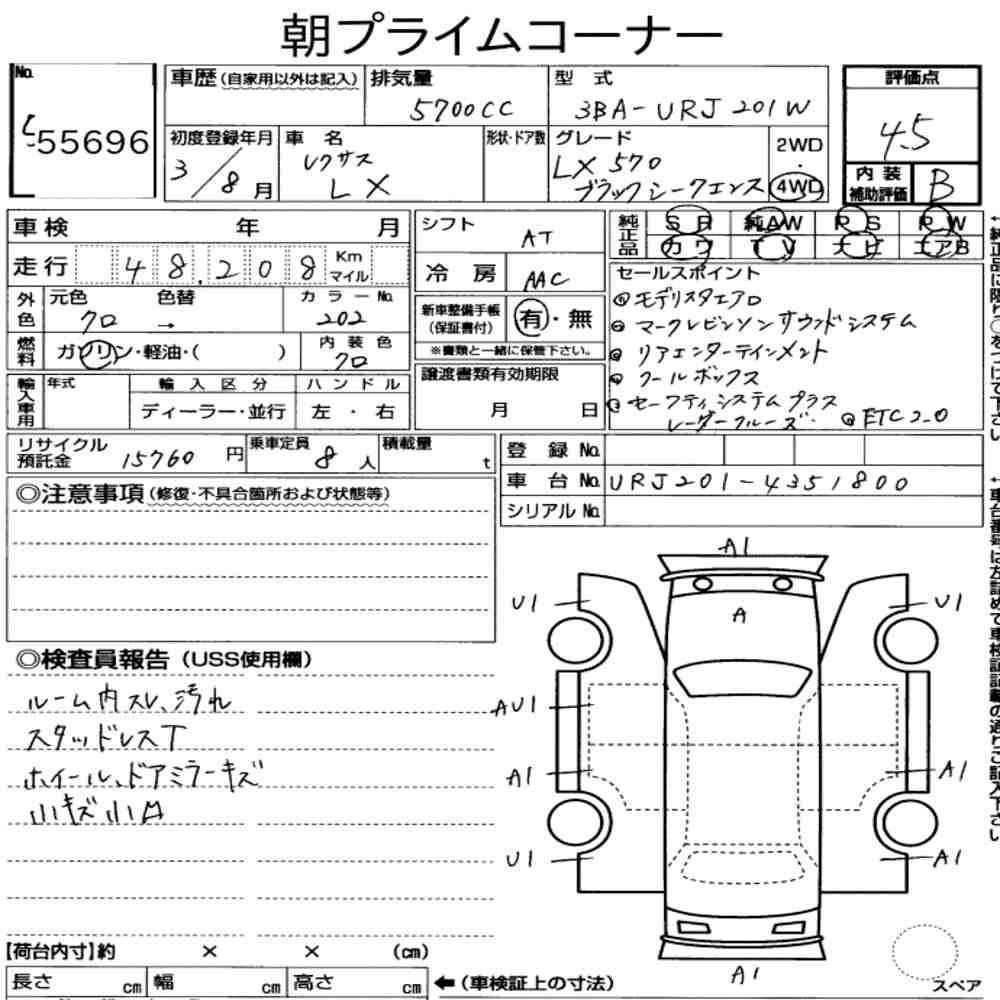 朝プライムコーナー
No.
55696
車歴(自家用以外は記入)
排気量
5700CC
型式
3BA-URJ201W
評価点
4.5
初度登録年月
3/8月
車名
レクサス
LX
形状・ドア数
グレード
LX570
ブラックシークエンス
2WD
・
4WD
内装
補助評価
B
車検 年 月
シフト
AT
純正品
SR 純AW PS PW
カワ TV ナビ エアB
走行 48,208 Km
マイル
冷房
AAC
セールスポイント
◎モデリスタエアロ
◎マークレビンソンサウンドシステム
◎リアエンターテインメント
◎クールボックス
◎セーフティシステムプラス
レーダークルーズ
◎ETC2.0
外色
元色
クロ
色替
→
カラーNo.
202
新車整備手帳
(保証書付)
有・無
※書類と一緒に保管下さい。
燃料
ガソリン・軽油・( )
内装色
クロ
輸入車用
年式
輸入区分
ディーラー・並行
ハンドル
左・右
譲渡書類有効期限
月 日
リサイクル
預託金
15760円
乗車定員
8人
積載量
t
登録No.
車台No. URJ201-4351800
シリアルNo.
◎注意事項(修復・不具合箇所および状態等)
◎検査員報告(USS使用欄)
ルーム内スレ、汚れ
スタッドレスT
ホイール、ドアミラーキズ
小キズ小凹
A1
U1
U1
A
AU1
A1
A1
U1
A1
A1
スペア
【荷台内寸】約 × × (cm)
長さ cm 幅 cm 高さ cm
←(車検証上の寸法)